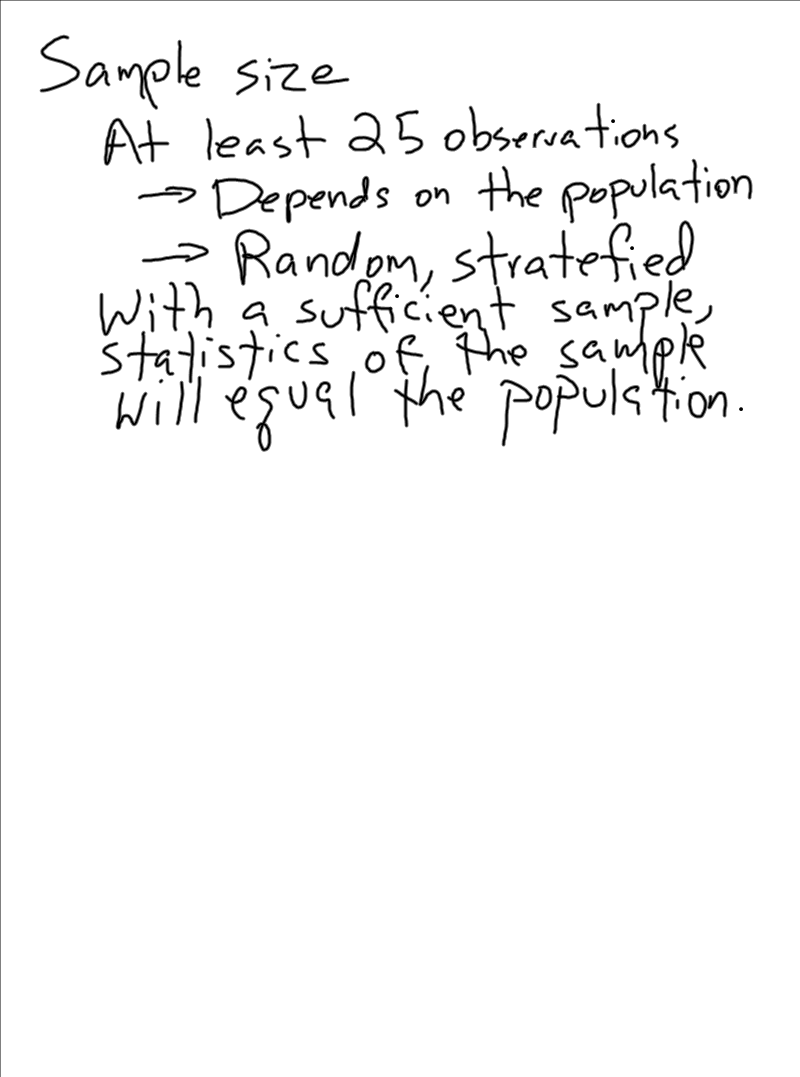 Sample size
At least 25 observations
→ Depends on the population
→ Random, stratefied
With a sufficient sample,
statistics of the sample
will equal the population.